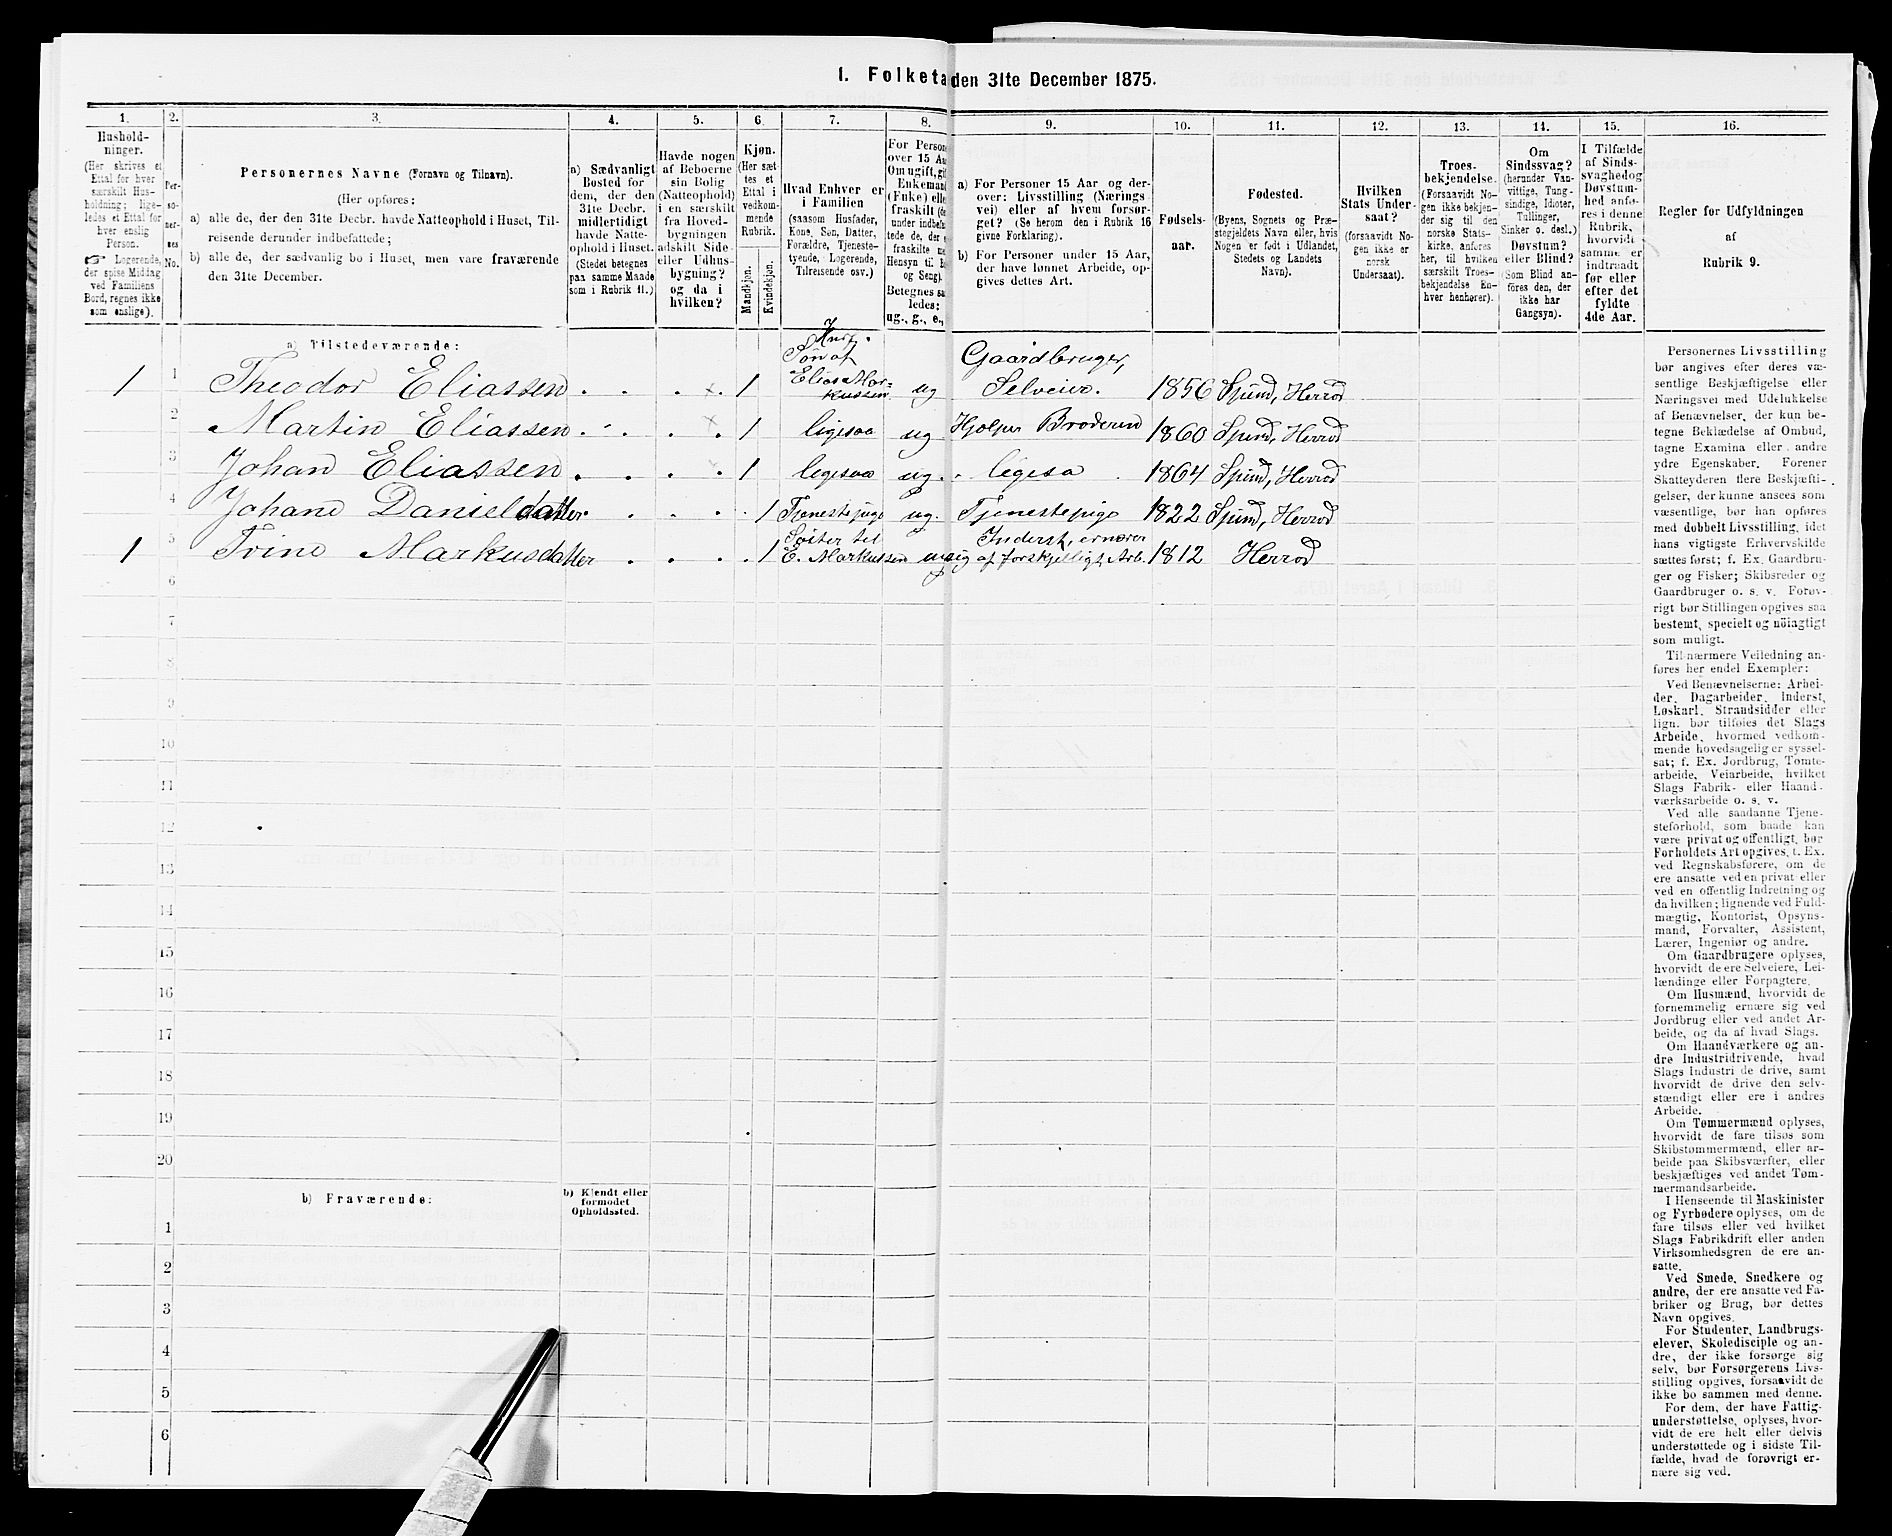 1. Folketa den 31te December 1875.
1.
Hushold-
ninger.
(Her skrives et
Ettal for hver
særskilt Hus-
holdning; lige-
ledes et Ettal for
hver enslig
Person.
☞ Logerende,
der spise Middag
ved Familiens
Bord, regnes ikke
som enslige).
2.
Per-
so-
ner-
nes
No.
3.
Personernes Navne (Fornavn og Tilnavn).
(Her opføres:
a) alle de, der den 31te Decbr. havde Natteophold i Huset, Til-
reisende derunder indbefattede;
b) alle de, der sædvanlig bo i Huset, men vare fraværende
den 31te December.
4.
a) Sædvanligt
Bosted for
dem, der den
31te Decbr.
midlertidigt
havde Natte-
ophold i Huset.
(Stedet betegnes
paa samme Maade
som i Rubrik 11.)
5.
Havde nogen
af Beboerne
sin Bolig
(Natteophold)
i en særskilt
fra Hoved-
bygningen
adskilt Side-
eller Udhus-
bygning?
og da i
hvilken?
6.
Kjøn.
(Her sæt-
tes et
Ettal i
vedkom-
mende
Rubrik.
Mandkjøn.
Kvindekjøn.
7.
Hvad Enhver er
i Familien
(saasom Husfader,
Kone, Søn, Datter,
Forældre, Tjeneste-
tyende, Logerende,
Tilreisende osv.)
8.
For Persone
over 15 Aa
Om ugift, gif
Enkemand
(Enke) elle
fraskilt (de
under indbefa
tede de, der e
fraskilte me
Hensyn til Bo
og Seng).
Betegnes saa
ledes:
ug., g., e.,
9.
a) For Personer 15 Aar og der-
over: Livsstilling (Nærings-
vei) eller af hvem forsør-
get? (Se herom den i Rubrik 16
givne Forklaring).
b) For Personer under 15 Aar,
der have lønnet Arbeide, op-
gives dettes Art.
10.
Fødsels-
aar.
11.
Fødested.
(Byens, Sognets og Præ-
stegjeldets Navn eller, hvis
Nogen er født i Udlandet,
Stedets og Landets
Navn).
12.
Hvilken
Stats Under-
saat?
(forsaavidt No-
gen ikke er
norsk
Undersaat).
13.
Troes-
bekjendelse.
(Forsaavidt No-
gen ikke bekjen-
der sig til den
norske Stats-
kirke, anføres
her, til hvilken
særskilt Troes-
bekjendelse En-
hver henhører).
14.
Om
Sindssvag?
(herunder Van-
vittige, Tung-
sindige, Idioter,
Tullinger,
Sinker o. desl.)
Døvstum?
eller Blind?
(Som Blind an-
føres den, der
ikke har
Gangsyn).
15.
I Tilfælde
af Sinds-
svaghed og
Døvstum-
hed anfø-
res i denne
Rubrik,
hvorvidt
samme er
indtraadt
før eller
efter det
fyldte
4de Aar.
16.
Regler for Udfyldningen
af
Rubrik 9.
a) Tilstedeværende:
1 1 Theodor Eliassen 1 Søn af Elias Markussen ug Gaardbruger, Selveier. 1856 Spind, Herrod
2 Martin Eliassen 1 ligesaa ug Hjælper Broderen 1860 Spind, Herrod
3 Johan Eliassen 1 ligesaa ug. ligesa 1864 Spind, Herrod
4 Johane Danielsdatter 1 Tjenestepige ug. Tjenestepige 1822 Spind, Herrod
1 5 Trine Markusdatter 1 Søster til E. Markussen ug Inderst, ernærer sig af forskjelligt Arb. 1812 Herrod
6
7
8
9
10
11
12
13
14
15
16
17
18
19
20
b) Fraværende:
b) Kjendt eller
formodet
Opholdssted.
1
2
3
4
5
6
Personernes Livsstilling
bør angives efter deres væ-
sentlige Beskjæftigelse eller
Næringsvei med Udelukkelse
af Benævnelser, der kun be-
tegne Beklædelse af Ombud,
tagne Examina eller andre
ydre Egenskaber. Forener
Skatteyderen flere Beskjæfti-
gelser, der kunne ansees som
væsentlige, bør han opføres
med dobbelt Livsstilling, idet
hans vigtigste Erhvervskilde
sættes først; f. Ex. Gaardbru-
ger og Fisker; Skibsreder og
Gaardbruger o. s. v. Forøv-
rigt bør Stillingen opgives saa
bestemt, specielt og nöiagtigt
som muligt.
Til nærmere Veiledning an-
føres her endel Exempler:
Ved Benævnelserne: Arbei-
der, Dagarbeider, Inderst,
Løskarl, Strandsidder eller
lign. bør tilføies det Slags
Arbeide, hvormed vedkom-
mende hovedsagelig er syssel-
sat; f. Ex. Jordbrug, Tømte-
arbeide, Veiarbeide, hvilket
Slags Fabrik- eller Haand-
værksarbeide o. s. v.
Ved alle saadanne Tjene-
steforhold, som baade kan
være privat og offentligt, bør
Forholdets Art opgives, t. Ex.
ved Regnskabsførere, om de
ere ansatte ved en privat eller
ved en offentlig Indretning og
da hvilken; lignende ved Fuld-
mægtig, Kontorist, Opsyns-
mand, Forvalter, Assistent,
Lærer, Ingeniør og andre.
Om Gaardbrugere oplyses,
hvorvidt de ere Selveiere, Lei-
lændinge eller Forpagtere.
Om Husmænd, hvorvidt de
fornemmelig ernære sig ved
Jordbrug eller ved andet Ar-
beide, og da af hvad Slags.
Om Haandværkere og an-
dre Industridrivende, hvad
Slags Industri de drive, samt
hvorvidt de drive den selv-
stændigt eller ere i andres
Arbeide.
Om Tømmermænd oplyses,
hvorvidt de fare tilsøs som
Skibstømmermænd, eller ar-
beide paa Skibsværfter, eller
beskjæftiges ved andet Tøm-
mermandsarbeide.
I Henseende til Maskinister
og Fyrbødere oplyses, om de
fare tilsøs eller ved hvilket
Slags Fabrikdrift eller anden
Virksomhedsgren de ere an-
satte.
Ved Smede, Snedkere og
andre, der ere ansatte ved Fa-
briker og Brug, bør dettes
Navn opgives.
For Studenter, Landbrugs-
elever, Skoledisciple og an-
dre, der ikke forsørge sig
selv, bør Forsørgerens Livs-
stilling opgives, forsaavidt de
ikke bo sammen med denne.
For dem, der have Fattig-
understøttelse, oplyses, hvor-
vidt de ere helt eller delvis
understøttede og i sidste Til-
fælde, hvad de forøvrigt er-
nære sig ved.